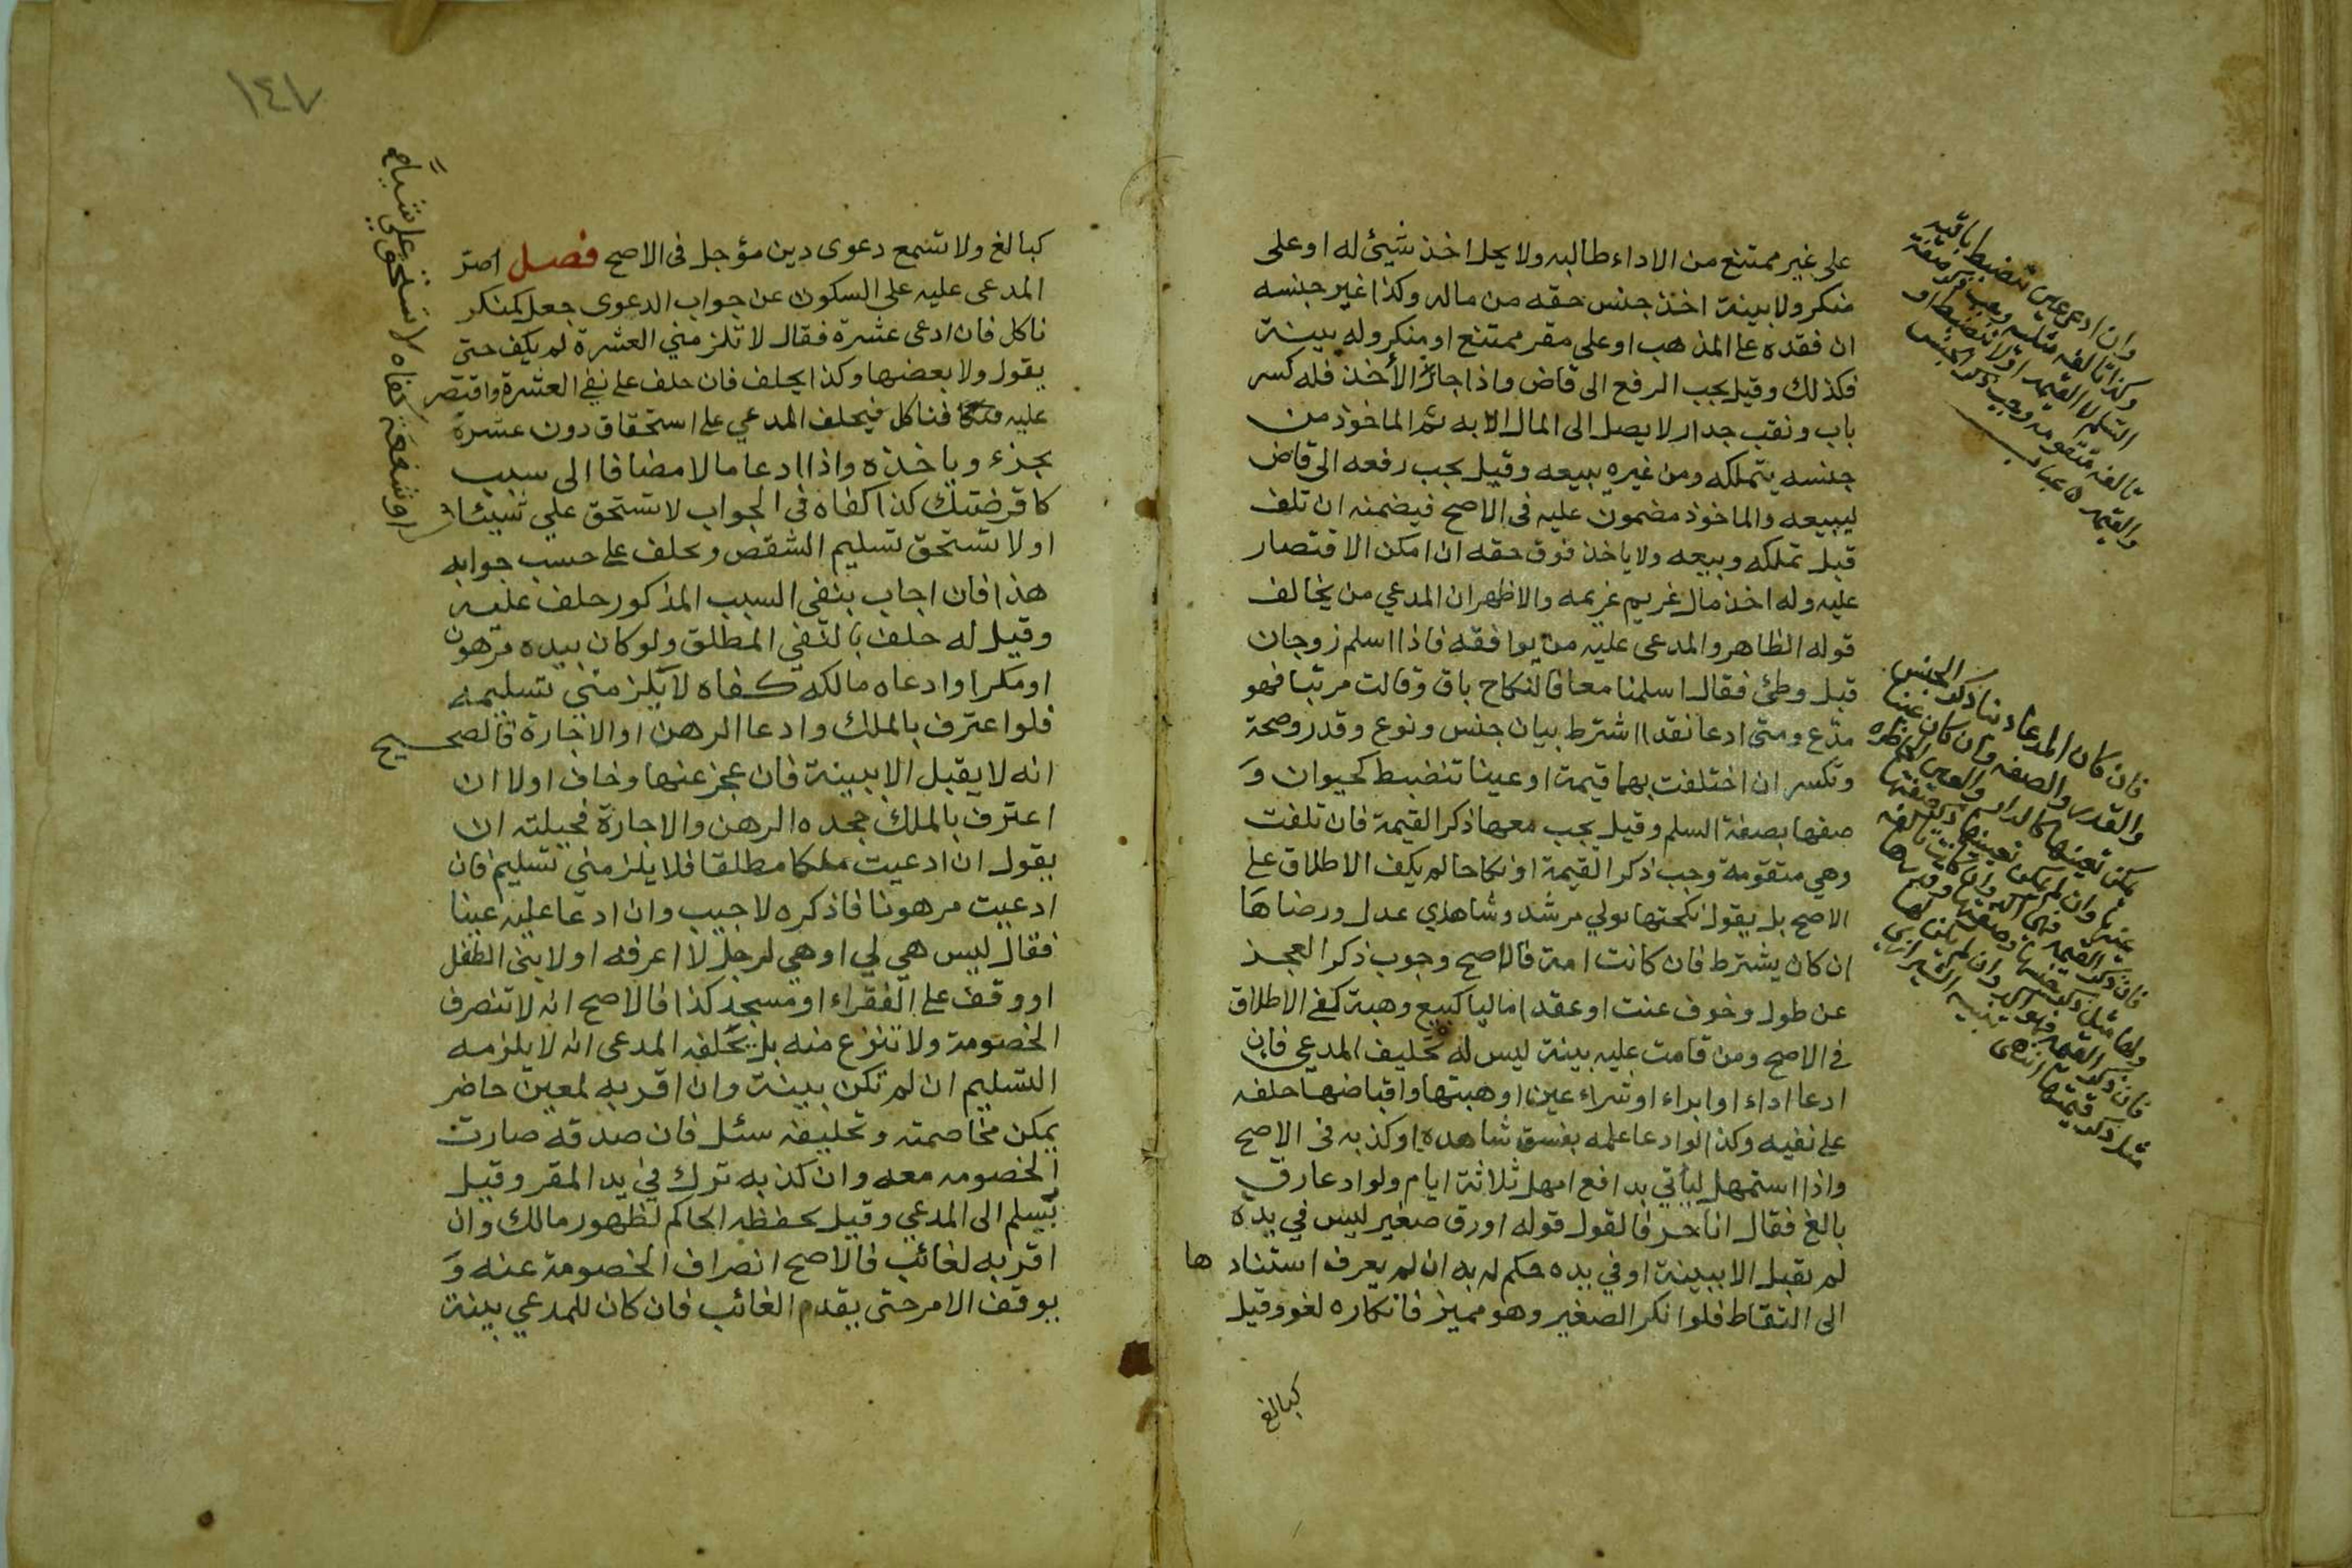 على غير ممتنع من الاداء طالبه ولا يحل اخذ شيئ له او على
منكر ولا بينة اخذ جنس حقه من ماله وكذا غير جنسه
ان فقده على المذهب او على مقر ممتنع او منكر وله بينة
فكذلك وقيل يجب الرفع الى قاض واذا جاز الأخذ فله كسر
باب ونقب جدار لا يصل الى المال الا به ثم الماخوذ من
جنسه يتملكه ومن غيره يبيعه وقيل يجب رفعه الى قاض
ليبيعه والماخوذ مضمون عليه فى الاصح فيضمنه ان تلف
قبل تملكه وبيعه ولا ياخذ فوق حقه ان امكن الاقتصار
عليه وله اخذ مال غريم غريمه والاظهر ان المدعي من يخالف
قوله الظاهر والمدعى عليه من يوافقه فاذا اسلم زوجان
قبل وطئ فقال اسلمنا معا فالنكاح باق وقالت مرتبا فهو
مدّع ومتى ادعا نقدا اشترط بيان جنس ونوع وقدر وصحة
وتكسر ان اختلفت بهما قيمة او عينا تنضبط كحيوان وَ
صفها بصفة السلم وقيل يجب معها ذكر القيمة فان تلفت
وهي متقومة وجب ذكر القيمة او نكاحا لم يكف الاطلاق على
الاصح بل يقول نكحتها بولي مرشد وشاهدي عدل ورضاها
ان كان يشترط فان كانت امة فالاصح وجوب ذكر العجز
عن طول وخوف عنت او عقدا ماليا كبيع وهبة كفى الاطلاق
فى الاصح ومن قامت عليه بينة ليس له تحليف المدعي فان
ادعا اداء او ابراء او شراء عين او هبتها واقباضها حلفه
على نفيه وكذا لو ادعا علمه بفسق شاهده او كذبه فى الاصح
واذا استمهل ليأتي بدافع امهل ثلاثة ايام ولو ادعا رق
بالغ فقال انا حر فالقول قوله او رق صغير ليس في يده
لم يقبل الا ببينة او في يده حكم له به ان لم يعرف استنادها
الى التقاط فلو انكر الصغير وهو مميز فانكاره لغو وقيل
كبالغ
وان ادعى عين تنضبط باقيه
وكذا تالفه مثليه وجب ذكر صفة
السلم لا القيمه او لا تنضبط او
تالفه متقومه وجب ذكر الجنس
والقيمه
فان كان المدعا دينا ذكر الجنس
والقدر والصفه وان كان عينا
١٤٧
كبالغ ولا تسمع دعوى دين مؤجل فى الاصح فصل اصرّ
المدعى عليه على السكوت عن جواب الدعوى جعل كمنكر
ناكل فان ادعى عشرة فقال لا تلزمني العشرة لم يكف حتى
يقول ولا بعضها وكذا يحلف فان حلف على نفي العشرة واقتصر
عليه فناكل فيحلف المدعي على استحقاق دون عشرة
بجزء وياخذه واذا ادعا مالا مضافا الى سبب
كاقرضتك كذا كفاه فى الجواب لا تستحق علي شيئا
او لا تستحق تسليم الشقص ويحلف على حسب جوابه
هذا فان اجاب بنفي السبب المذكور حلف عليه
وقيل له حلف بالنفي المطلق ولو كان بيده مرهون
او مكرا وادعاه مالكه كفاه لا يلزمني تسليمه
فلو اعترف بالملك وادعا الرهن او الاجارة فالصحيح
انه لا يقبل الا ببينة فان عجز عنها وخاف اولا ان
اعترف بالملك جحده الرهن والاجارة فحيلته ان
يقول ان ادعيت ملكا مطلقا فلا يلزمني تسليم فان
ادعيت مرهونا فاذكره لاجيب وان ادعا عليه عينا
فقال ليس هي لي او هي لرجل لا اعرفه او لابني الطفل
او وقف على الفقراء او مسجد كذا فالاصح انه لا تنصرف
الخصومة ولا تنزع منه بل يحلفه المدعى انه لا يلزمه
التسليم ان لم تكن بينة وان اقر به لمعين حاضر
يمكن مخاصمته وتحليفه سئل فان صدقه صارت
الخصومه معه وان كذبه ترك في يد المقر وقيل
يسلم الى المدعي وقيل يحفظه الحاكم لظهور مالك وان
اقر به لغائب فالاصح انصراف الخصومة عنه وَ
يوقف الامر حتى يقدم الغائب فان كان للمدعي بينة
او شفعة كفاه لا تستحق علي شياء